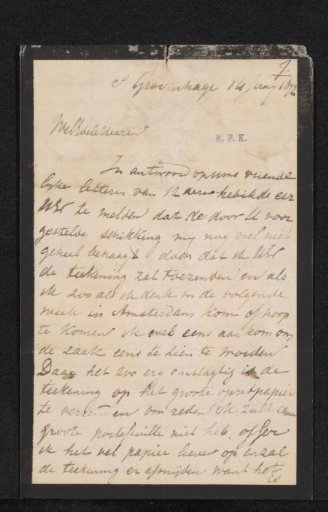 7
's Gravenhage 14 Juny 18
WelEdelHeeren
R.P.K.
In antwoord op uwe vriende
lyke letteren van 12 dezer heb ik de eer
te melden dat de door U voor
gestelde schikking my nog wel niet
geheel behaagt daar dat ik
de teekening zal verzenden en als
ik zoo als ik denk in de volgende
week in Amsterdam kom of hoop
te komen ik wel eens aankom om
de zaak eens te zien te worden
Daar het zoo erg omslagtig is de
teekening op het groote papier
te verzenden om reden ik zulk een
groote portefeuille niet heb. of
ik het vel papier liever op en zal
de teekening er afsnijden want het is